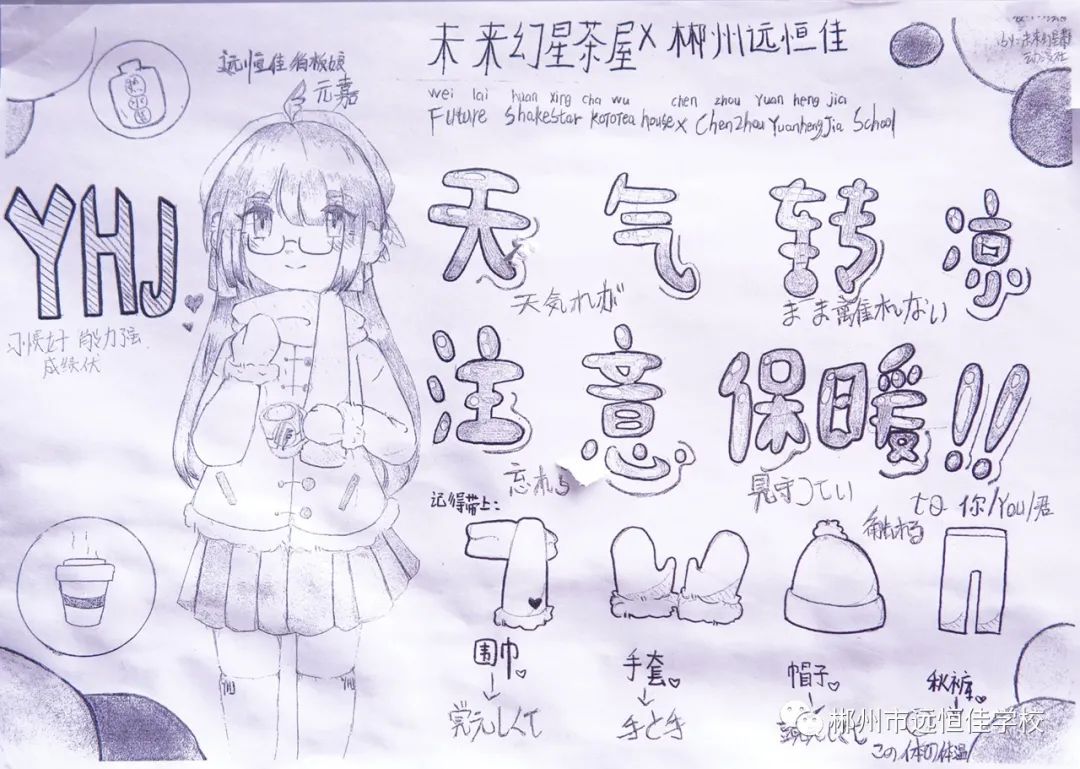 未来幻星茶屋×郴州远恒佳
wei lai huan xing cha wu chen zhou Yuan heng jia
Future ShakeStar Kototea house× ChenZhou YuanhengJia School
远恒佳看板娘
元嘉
YHJ
习惯好 能力强
成绩优
天气转凉
天気れが
まま離れしない
注意保暖!!
忘れら
見守つてい
to 你/You/君
记得带上:
围巾
手套
手と手
帽子
秋裤
この体の体温
YHJ
YHJ
郴州市远恒佳学校